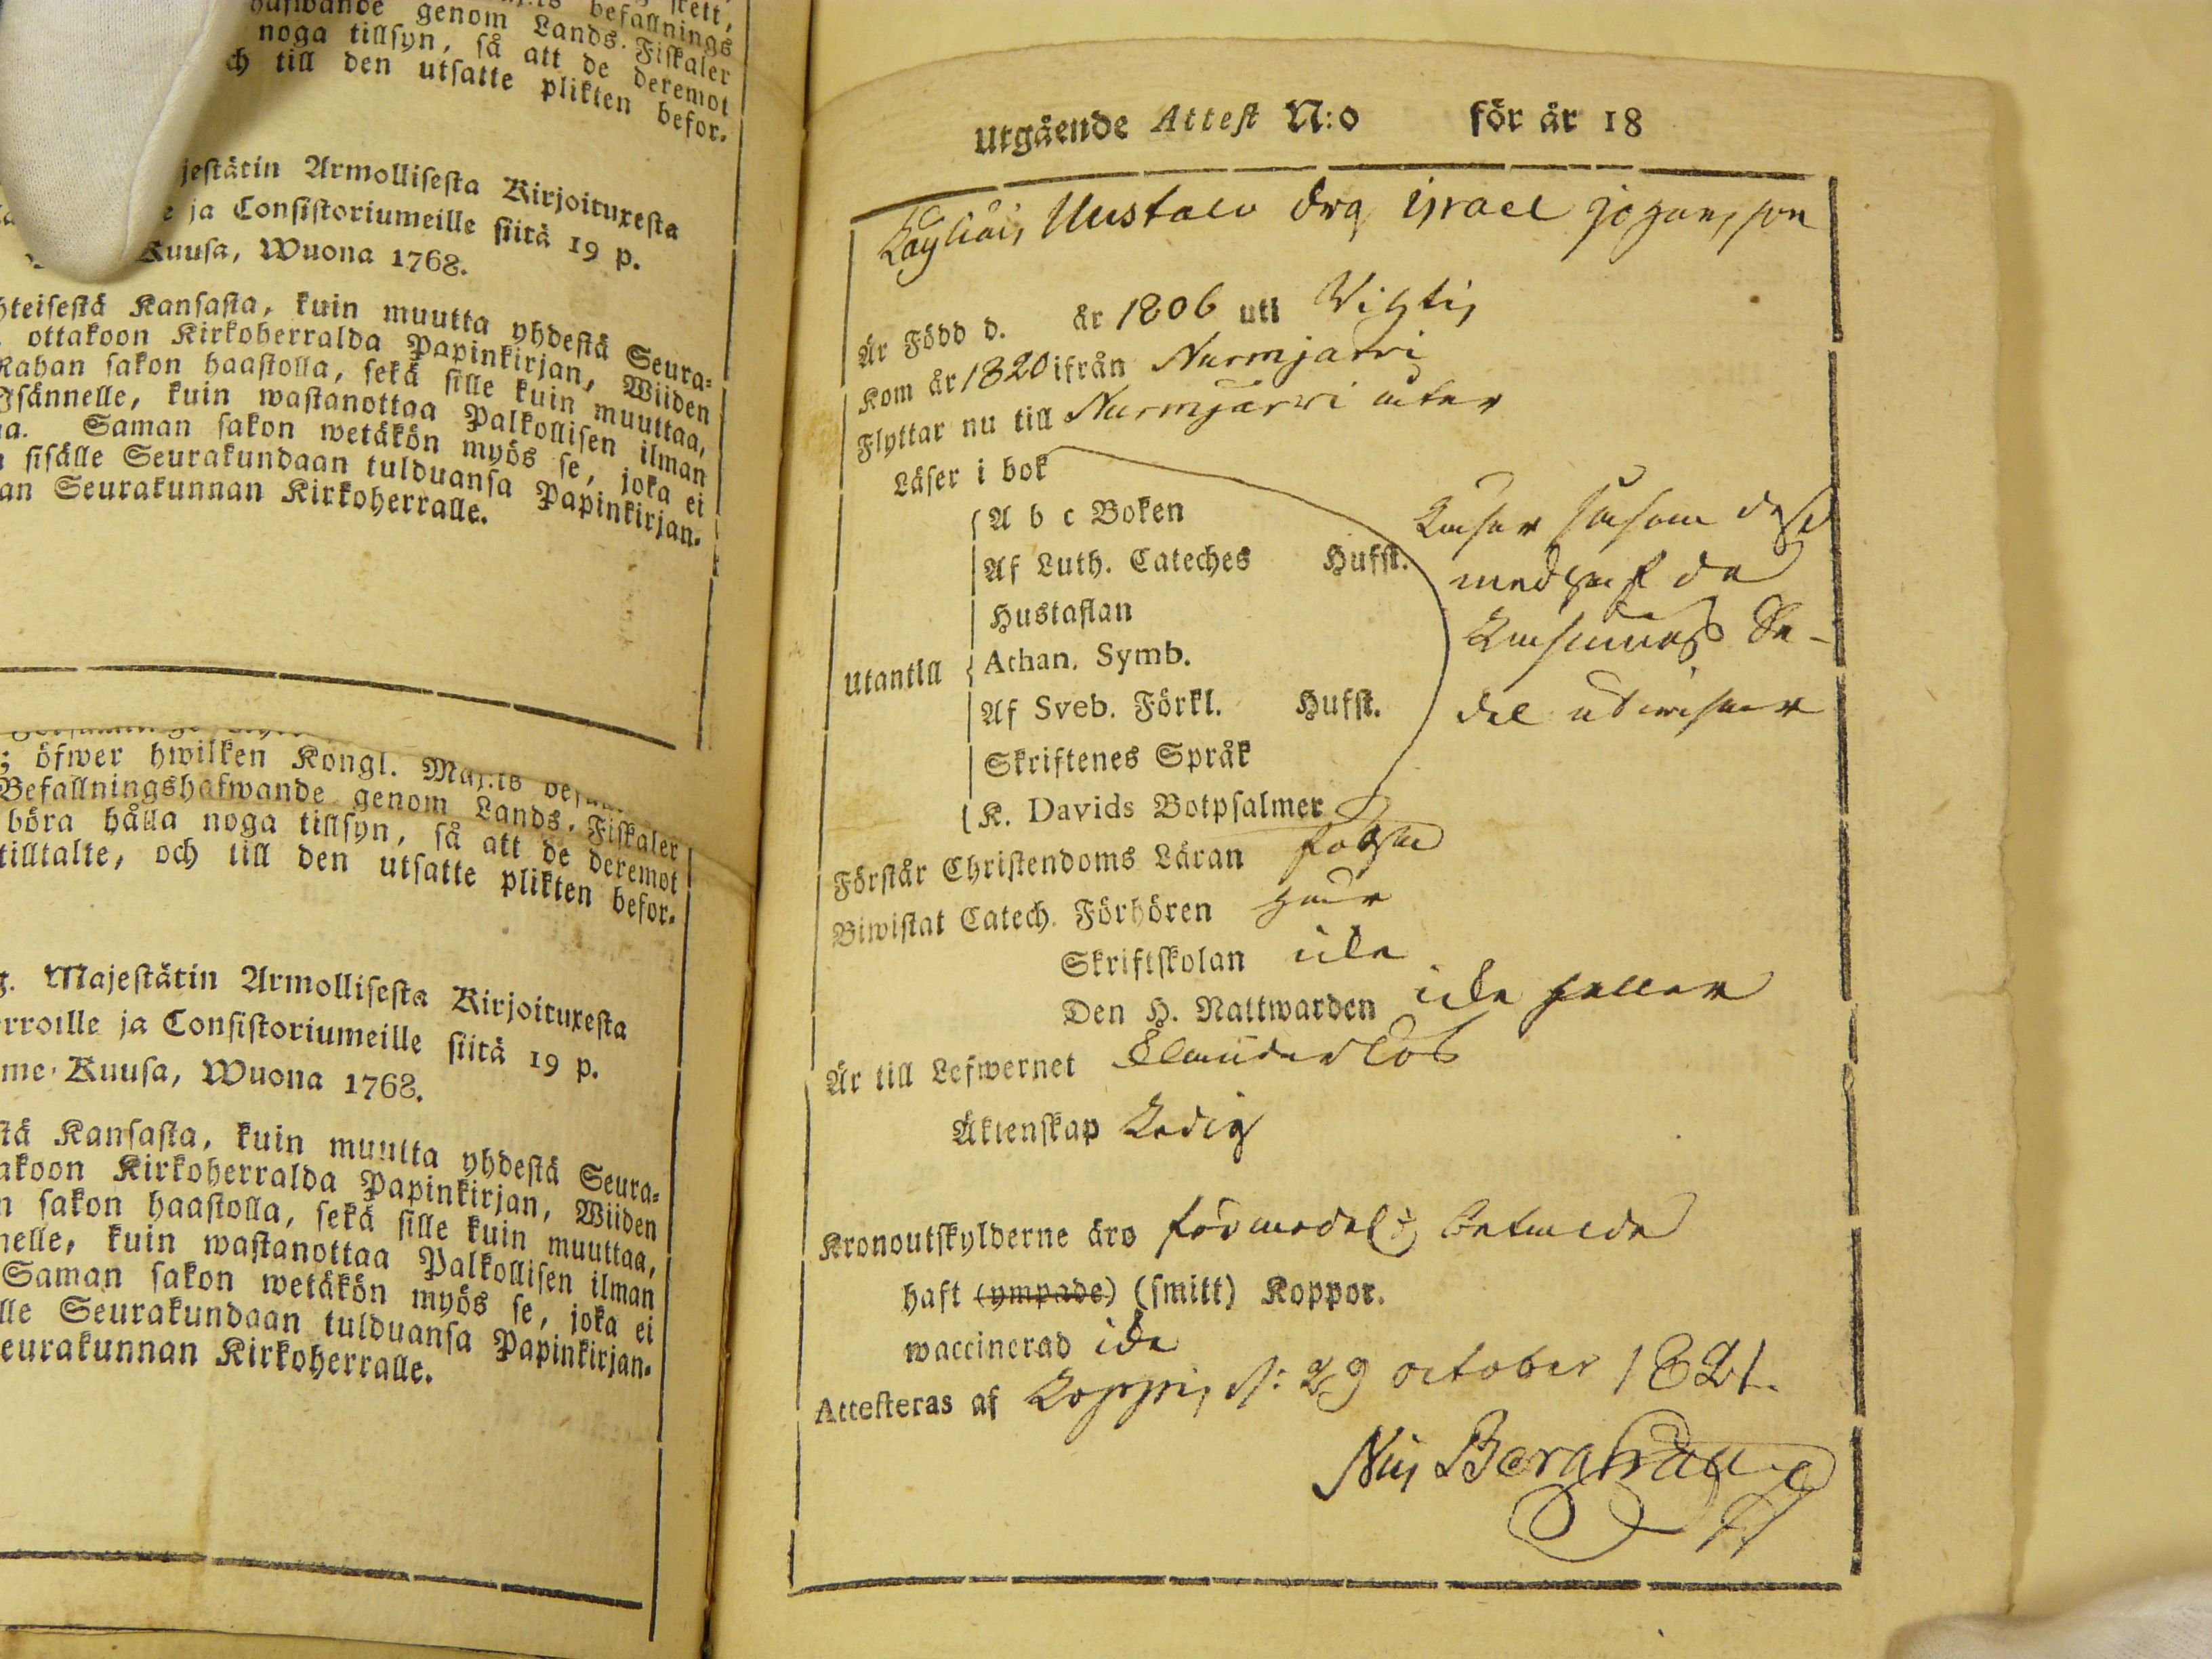 skett,
befallnings
hafwande genom Lands-Fiskaler
noga tillsyn, så att de deremot
ch till den utsatte plikten befor-
jestätin Armollisesta Kirjoituxesta
e ja Consistoriumeille siitä 19 p.
Kuusa, Wuona 1768.
hteisestä Kansasta, kuin muutta yhdestä Seura-
ottakoon Kirkoherralda Papinkirjan, Wiiden
Rahan sakon haastolla, sekä sille kuin muuttaa,
Isännelle, kuin wastanottaa Palkollisen ilman
a. Saman sakon wetäkön myös se, joka ei
sisälle Seurakundaan tulduansa Papinkirjan-
an Seurakunnan Kirkoherralle.
; öfwer hwilken Kongl. Maj:ts
Befallningshafwande genom Lands-Fiskaler
böra hålla noga tillsyn, så att de deremot
tilltalte, och till den utsatte plikten befor-
g. Majestätin Armollisesta Kirjoituxesta
rroille ja Consistoriumeille siitä 19 p.
me-Kuusa, Wuona 1768.
stä Kansasta, kuin muutta yhdestä Seura-
akoon Kirkoherralda Papinkirjan, Wiiden
n sakon haastolla, sekä sille kuin muuttaa,
nelle, kuin wastanottaa Palkollisen ilman
Saman sakon wetäkön myös se, joka ei
lle Seurakundaan tulduansa Papinkirjan-
eurakunnan Kirkoherralle.
Utgående Attest N:o för år 18
Mustalu drg Israel Johansson
Är Född d. år 1806 uti Vihtis
Kom år 1820 ifrån Nurmjarvi
Flyttar nu till Nurmjärvi åter
Läser i bok
A b c Boken
Af Luth. Cateches Hufst.
Hustaflan
Utantill Athan. Symb.
Af Sveb. Förkl. Hufst.
Skriftenes Språk
K. Davids Botpsalmer
Läser såsom dess
medhafde
Läsnings Se-
del utwisar
Förstår Christendoms Läran
Biwistat Catech. Förhören
Skriftskolan icke
Den H. Nattwarden icke heller
Är till Lefwernet Klanderlös
Äktenskap Ledig
Kronoutskylderne äro betalde
haft (ympade) (smitt) Koppor.
waccinerad icke
Attesteras af Loppis d: 29 october 1821.
Nils Bergman